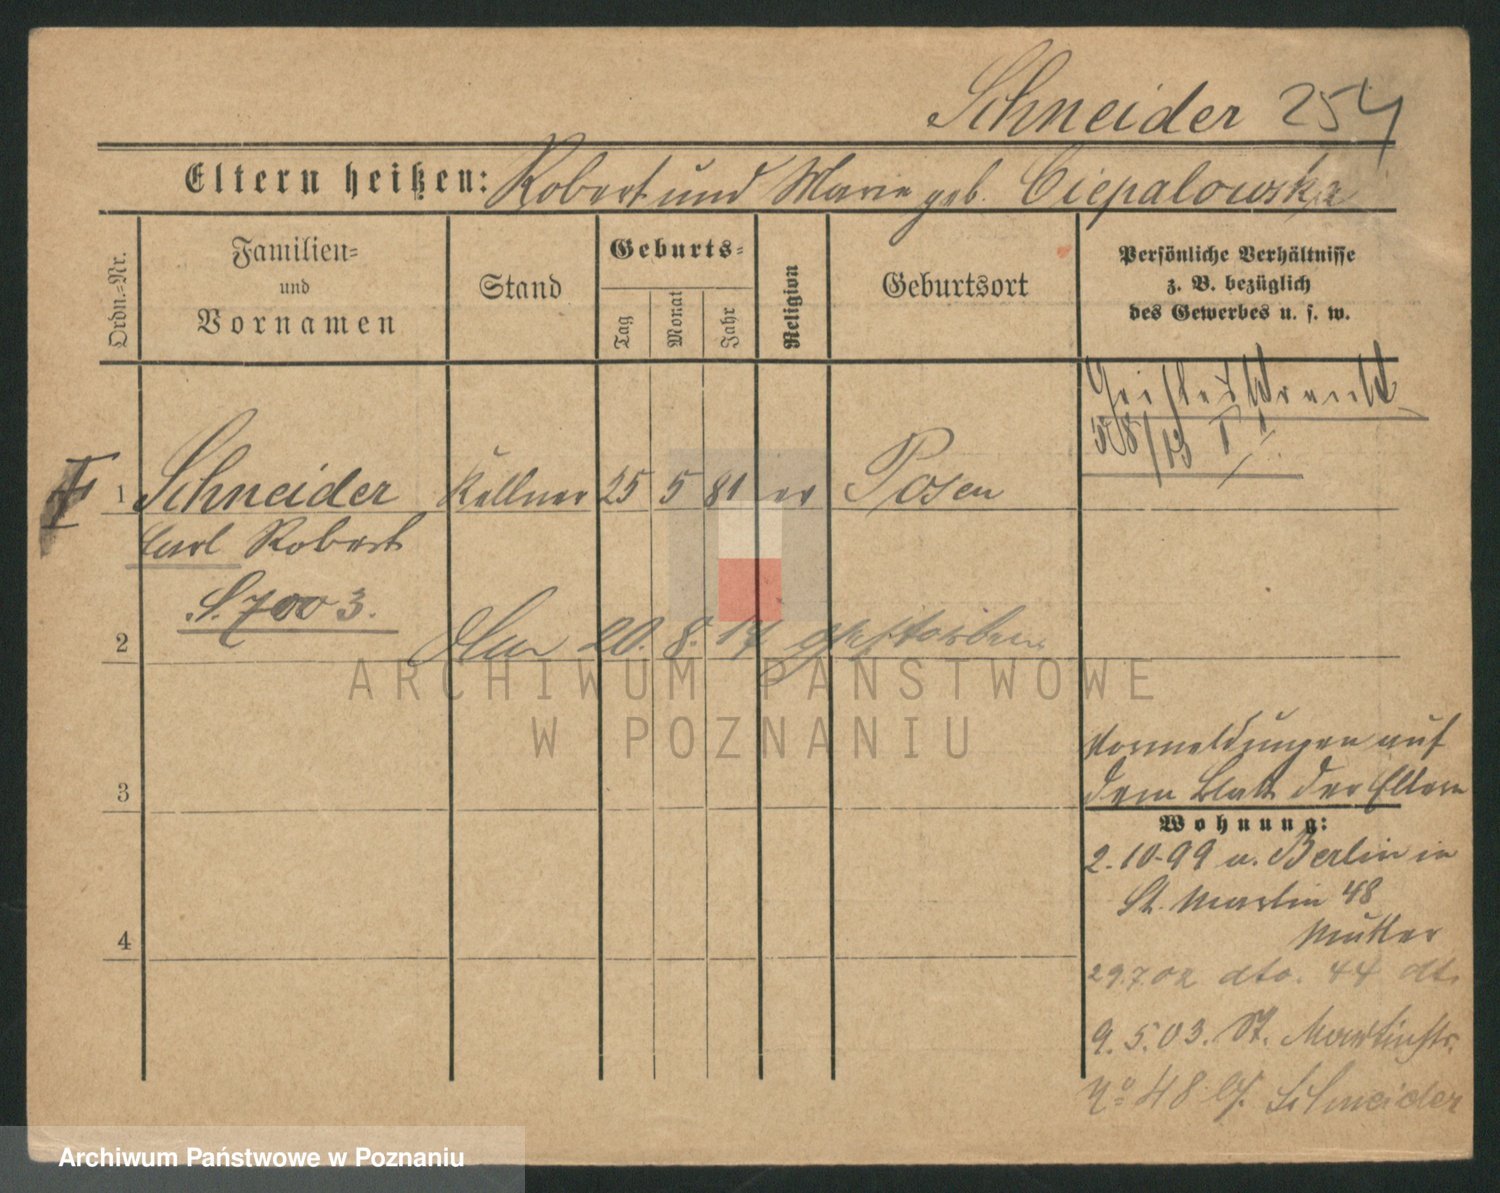 Schneider 254
Eltern heißen: Robert und Marie geb. Ciepalowska
Ordn.=Nr.
Familien=
und
Vornamen
Stand
Geburts=
Tag
Monat
Jahr
Religion
Geburtsort
Persönliche Verhältnisse
z. B. bezüglich
des Gewerbes u. s. w.
Geisteskrank
1 Schneider Kellner 25 5 81 ev Posen
Carl Robert
S. 7003.
2 Am 20. 8. 17 gestorben.
ARCHIWUM PAŃSTWOWE
W POZNANIU
Vormeldungen auf
3 dem Blatt der Eltern
Wohnung:
2.10.99 v. Berlin in
St. Martin 48
4 Mutter
29.7.02 dto. 44 dt.
9.5.03. St. Martinstr.
No 48 b/. Schneider
Archiwum Państwowe w Poznaniu